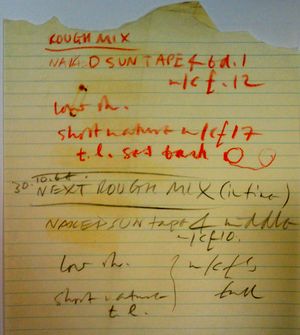 ROUGH MIX
NAKED SUN TAPE 4 bd. 1
w/cf. 12
low rh.
short nature w/cf 17
t.l. set back
30.10.62
NEXT ROUGH MIX
NAKED SUN tape 4 middle
w/cf 10.
low rh.
w/cf
short nature
t.l.